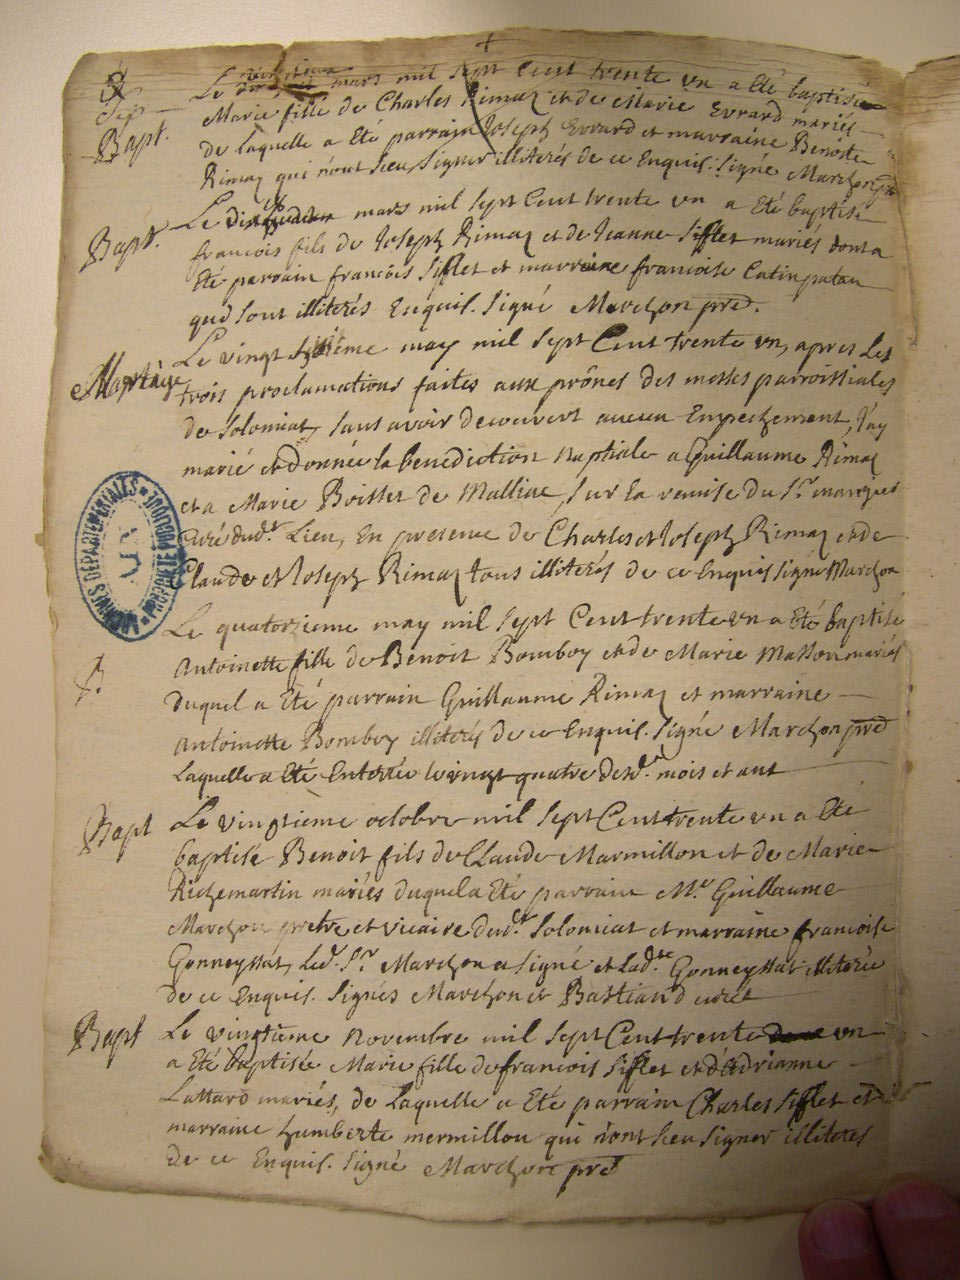 Le mars mil sept Cent trente un a Eté baptisée
Sep
Bapt.
Marie fille de Charles Rimaz et de Marie Evrard mariés
de laquelle a Eté parrain Joseph Evrard et marraine Benoite
Rimaz qui n'ont sceu signer illiterés de ce Enquis. Signé Marchon
Bapt.
Le mars mil sept Cent trente un a Eté baptisé
francois fils de Joseph Rimaz et de Jeanne Siflet mariés dont a
Eté parrain francois Siflet et marraine francoise Catin patau
qui sont illiterés Enquis. Signé Marchon pred.
Mariage
Le vingt may mil sept Cent trente un, apres Les
trois proclamations faites aux prônes des messes parroissiales
de Solomiat, sans avoir decouvert aucun Empechement, J'ay
marié et donnée la benediction nuptiale a Guillaume Rimaz
et a Marie Boisset de Malliac, sur la remise du Sr. marques
Curé dudt. Lieu, En presence de Charles et Joseph Rimaz et de
Claude et Joseph Rimaz tous illiterés de ce Enquis signé Marchon
B.
Le quatorzieme may mil sept Cent trente un a Eté baptisé
Antoinette fille de Benoit Bomboy et de Marie Masson mariés
duquel a Eté parrain Guillaume Rimaz et marraine
Antoinette Bomboy illiterés de ce Enquis. Signé Marchon pred
Laquelle a Eté Enterrée le vingt quatre desd. mois et ant
Bapt
Le vingtieme octobre mil sept Cent trente un a Eté
baptisé Benoit fils de Claude Marmillon et de Marie
Richemartin mariés duquel a Eté parrain Mre Guillaume
Marchon pretre et vicaire dudt. Solomiat et marraine francoise
Gonneyssat, Led. Sr. Marchon a signé et Ladte. Gonneyssat illiterée
de ce Enquis. Signés Marchon et Bastiand curé
Bapt
Le vingtieme Novembre mil sept Cent trente un
a Eté baptisée Marie fille de francois Siflet et d'Adrianne
Lattard mariés, de Laquelle a Eté parrain Charles Siflet et
marraine humberte mermillon qui n'ont sceu signer illiteres
de ce Enquis. Signé Marchon pred
ARCHIVES DEPARTEMENTALES
AIN